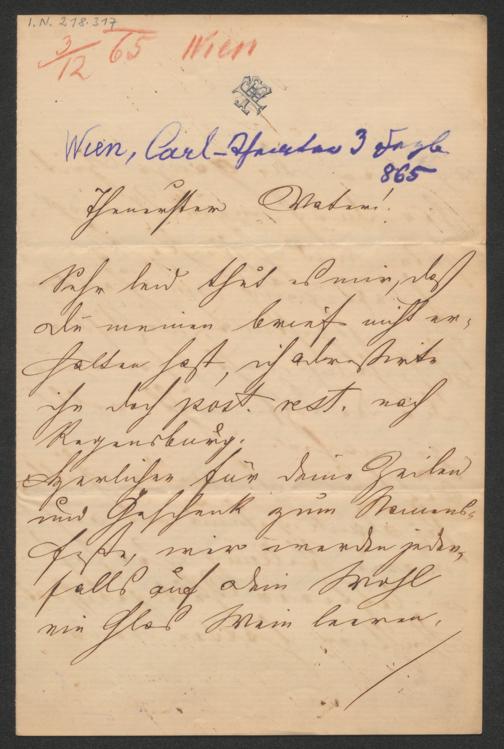 I.N. 218.317
3/12 65 Wien
Wien, Carl-Theater 3
865
Theuerster Vater!
Sehr leid thut es mir, daß
du meinen brief nicht er-
halten hast, ich adressirte
ihn doch post. rest. nach
Regensburg.
für deine Zeilen
und Geschenk zum Namens-
feste, wir werden jeden-
falls auf dein Wohl
ein Glas Wein leeren.